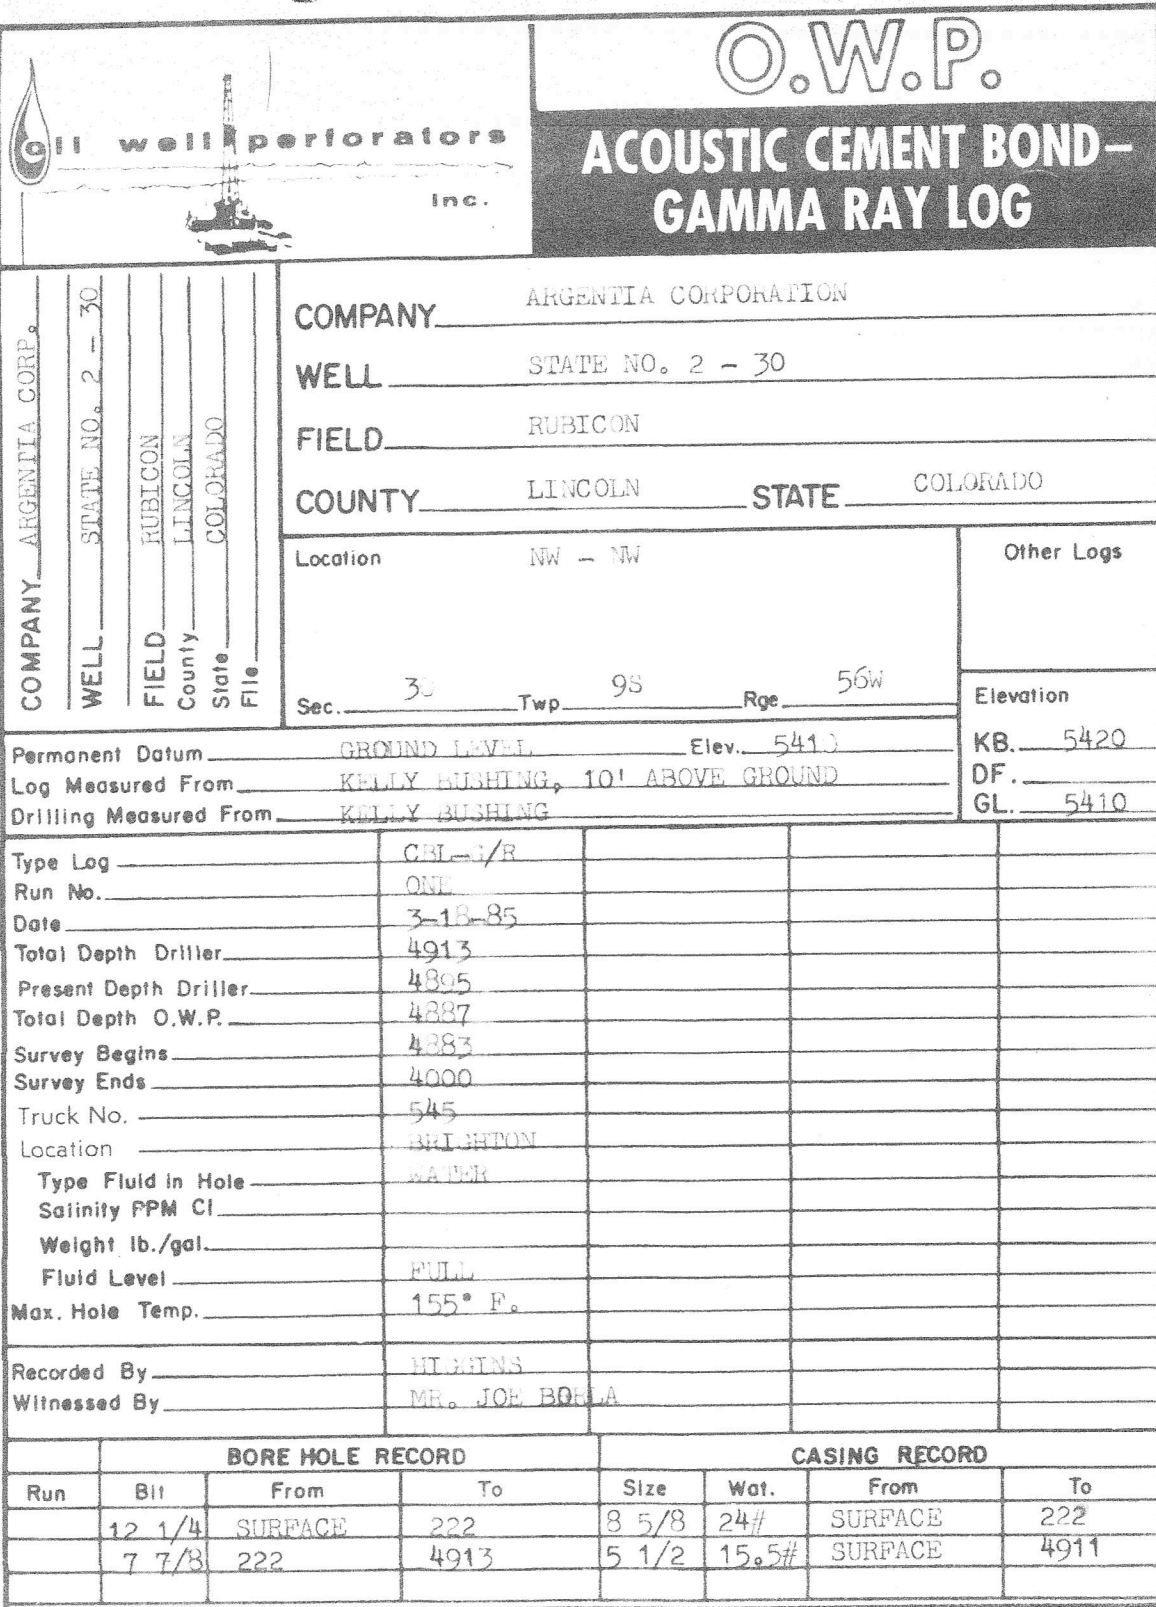 O.W.P.
oil well perforators
Inc.
ACOUSTIC CEMENT BOND–
GAMMA RAY LOG
COMPANY ARGENTIA CORP.
WELL STATE NO. 2 - 30
FIELD RUBICON
County LINCOLN
State COLORADO
File
COMPANY ARGENTIA CORPORATION
WELL STATE NO. 2 - 30
FIELD RUBICON
COUNTY LINCOLN STATE COLORADO
Location NW - NW
Other Logs
Sec. 30 Twp. 9S Rge. 56W
Elevation
Permanent Datum GROUND LEVEL Elev. 5410
KB. 5420
Log Measured From KELLY BUSHING, 10' ABOVE GROUND
DF.
Drilling Measured From KELLY BUSHING
GL. 5410
Type Log CBL-G/R
Run No. ONE
Date 3-18-85
Total Depth Driller 4913
Present Depth Driller 4895
Total Depth O.W.P. 4887
Survey Begins 4883
Survey Ends 4000
Truck No. 545
Location BRIGHTON
Type Fluid in Hole WATER
Salinity PPM Cl
Weight lb./gal.
Fluid Level FULL
Max. Hole Temp. 155° F.
Recorded By HIGGINS
Witnessed By MR. JOE
BORE HOLE RECORD CASING RECORD
Run Bit From To Size Wgt. From To
12 1/4 SURFACE 222 8 5/8 24# SURFACE 222
7 7/8 222 4913 5 1/2 15.5# SURFACE 4911